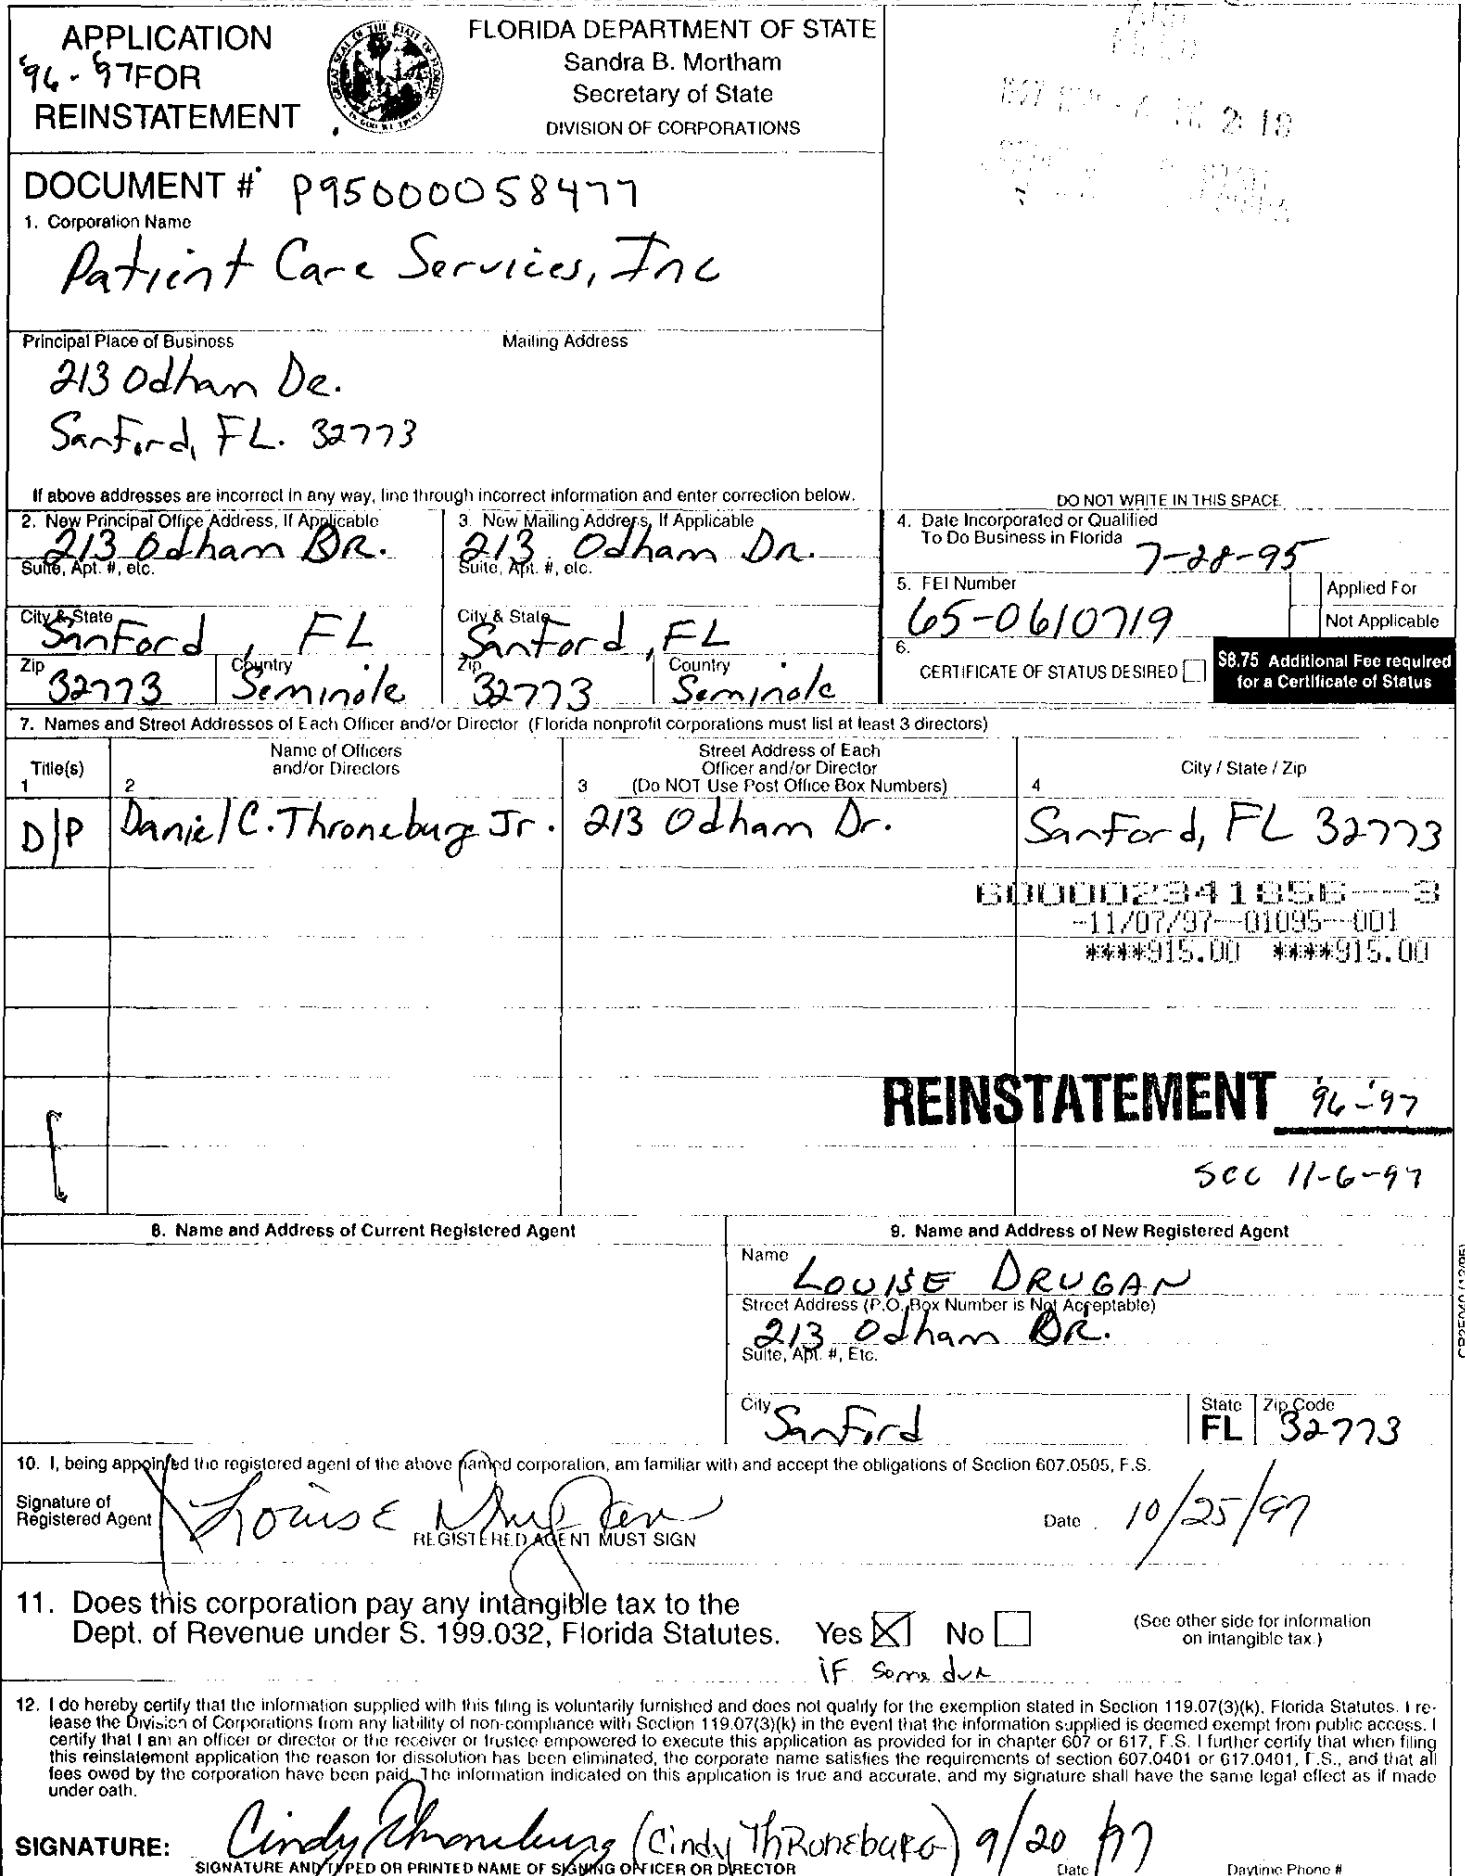 APPLICATION
'96 - '97 FOR
REINSTATEMENT
FLORIDA DEPARTMENT OF STATE
Sandra B. Mortham
Secretary of State
DIVISION OF CORPORATIONS
DOCUMENT # P95000058477
1. Corporation Name
Patient Care Services, Inc
Principal Place of Business Mailing Address
213 Odham DR.
Sanford, FL. 32773
If above addresses are incorrect in any way, line through incorrect information and enter correction below.
DO NOT WRITE IN THIS SPACE
2. New Principal Office Address, If Applicable
213 Odham DR.
Suite, Apt. #, etc.
City & State
Sanford, FL
Zip Country
32773 Seminole
3. New Mailing Address, If Applicable
213 Odham Dr.
Suite, Apt. #, etc.
City & State
Sanford, FL
Zip Country
32773 Seminole
4. Date Incorporated or Qualified
To Do Business in Florida
7-28-95
5. FEI Number
65-0610719
Applied For
Not Applicable
6.
CERTIFICATE OF STATUS DESIRED
$8.75 Additional Fee required
for a Certificate of Status
7. Names and Street Addresses of Each Officer and/or Director (Florida nonprofit corporations must list at least 3 directors)
Title(s)
1
Name of Officers
and/or Directors
2
Street Address of Each
Officer and/or Director
3 (Do NOT Use Post Office Box Numbers)
City / State / Zip
4
D/P Daniel C. Throneburg Jr. 213 Odham Dr. Sanford, FL 32773
600002341856---3
-11/07/97--01095--001
****915.00 ****915.00
REINSTATEMENT '96-'97
SCC 11-6-97
8. Name and Address of Current Registered Agent
9. Name and Address of New Registered Agent
Name
LOUISE DRUGAN
Street Address (P.O. Box Number is Not Acceptable)
213 Odham DR.
Suite, Apt. #, Etc.
City State Zip Code
Sanford FL 32773
CR2E040 (12/95)
10. I, being appointed the registered agent of the above named corporation, am familiar with and accept the obligations of Section 607.0505, F.S.
Signature of
Registered Agent
Louise Drugan
REGISTERED AGENT MUST SIGN
Date 10/25/97
11. Does this corporation pay any intangible tax to the
Dept. of Revenue under S. 199.032, Florida Statutes. Yes No
(See other side for information
on intangible tax.)
iF some due
12. I do hereby certify that the information supplied with this filing is voluntarily furnished and does not qualify for the exemption stated in Section 119.07(3)(k), Florida Statutes. I re-
lease the Division of Corporations from any liability of non-compliance with Section 119.07(3)(k) in the event that the information supplied is deemed exempt from public access. I
certify that I am an officer or director or the receiver or trustee empowered to execute this application as provided for in chapter 607 or 617, F.S. I further certify that when filing
this reinstatement application the reason for dissolution has been eliminated, the corporate name satisfies the requirements of section 607.0401 or 617.0401, F.S., and that all
fees owed by the corporation have been paid. The information indicated on this application is true and accurate, and my signature shall have the same legal effect as if made
under oath.
SIGNATURE: Cindy Throneburg (Cindy ThRoneburg) 9/20/97
SIGNATURE AND TYPED OR PRINTED NAME OF SIGNING OFFICER OR DIRECTOR Date Daytime Phone #